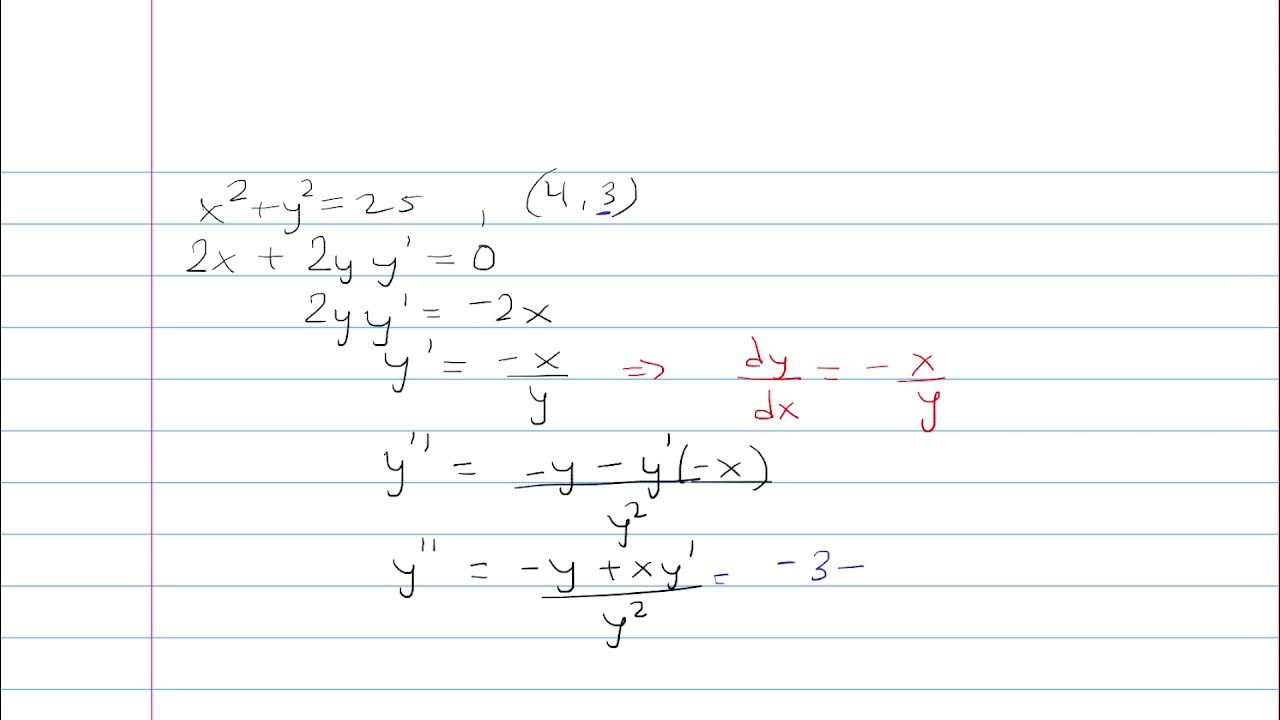 x² + y² = 25 , (4, 3)
2x + 2y y' = 0
2y y' = -2x
y' = -x/y ⇒ dy/dx = - x/y
y'' = (-y - y'(-x))/y²
y'' = (-y + xy')/y² = -3-